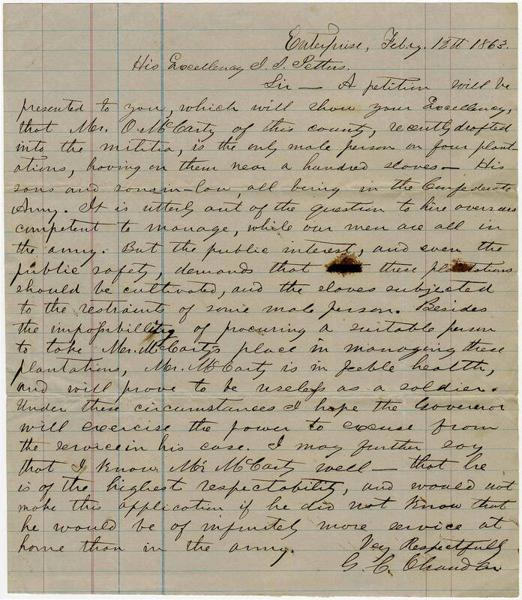 Enterprise, Feby. 12th 1863.
His Excellency J. J. Pettus.
Sir — A petition will be
presented to you, which will show your Excellency,
that Mr. O. McCarty of this county, recently drafted
into the militia, is the only male person on four plant-
ations, having on them near a hundred slaves — His
sons and sons-in-law all being in the Confederate
Army. It is utterly out of the question to hire overseers
competent to manage, while our men are all in
the army. But the public interest, and even the
public safety, demands that these plantations
should be cultivated, and the slaves subjected
to the restraints of some male person. Besides
the impossibility of procuring a suitable person
to take Mr. McCarty's place in managing these
plantations, Mr. McCarty is in feeble health,
and will prove to be useless as a soldier.
Under these circumstances I hope the Governor
will exercise the power to excuse from
the service in his case. I may further say
that I know Mr McCarty well — that he
is of the highest respectability, and would not
make this application if he did not know that
he would be of infinitely more service at
home than in the army.
Very Respectfully
G. C. Chandler